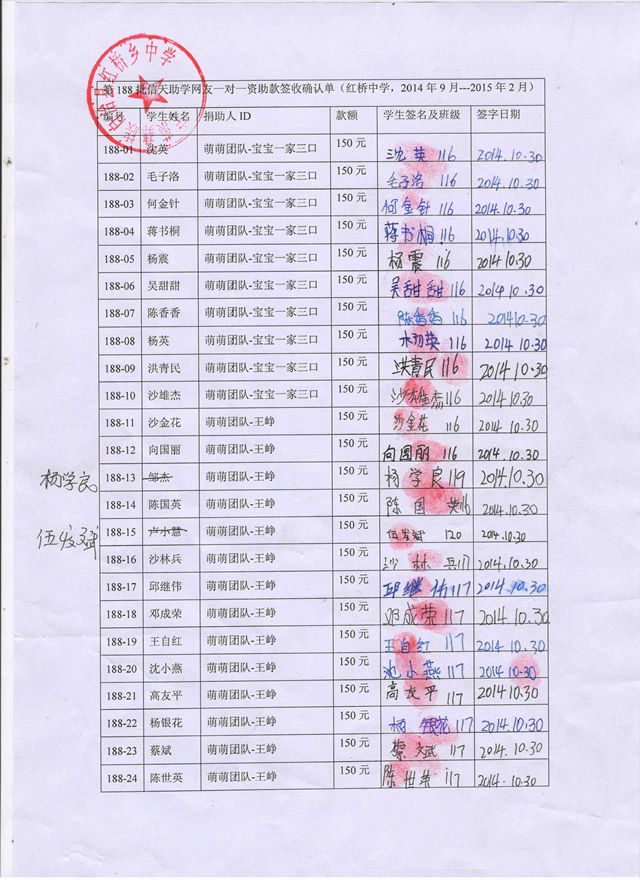 红桥乡中学
第188批信天助学网友一对一资助款签收确认单（红桥中学，2014年9月---2015年2月）
编号 学生姓名 捐助人ID 款额 学生签名及班级 签字日期
188-01 沈英 萌萌团队-宝宝一家三口 150元 沈英 116 2014.10.30
188-02 毛子洛 萌萌团队-宝宝一家三口 150元 毛子洛 116 2014.10.30
188-03 何金针 萌萌团队-宝宝一家三口 150元 何金针 116 2014.10.30
188-04 蒋书桐 萌萌团队-宝宝一家三口 150元 蒋书桐 116 2014.10.30
188-05 杨震 萌萌团队-宝宝一家三口 150元 杨震 116 2014.10.30
188-06 吴甜甜 萌萌团队-宝宝一家三口 150元 吴甜甜 116 2014.10.30
188-07 陈香香 萌萌团队-宝宝一家三口 150元 陈香香 116 201410.30
188-08 杨英 萌萌团队-宝宝一家三口 150元 杨英 116 2014.10.30
188-09 洪青民 萌萌团队-宝宝一家三口 150元 洪青民 116 2014.10.30
188-10 沙雄杰 萌萌团队-宝宝一家三口 150元 沙雄杰 116 2014.10.30
188-11 沙金花 萌萌团队-王峥 150元 沙金花 116 2014.10.30
188-12 向国丽 萌萌团队-王峥 150元 向国丽 116 2014.10.30
杨学良 188-13 邹杰 萌萌团队-王峥 150元 杨学良 119 2014.10.30
188-14 陈国英 萌萌团队-王峥 150元 陈国英 116 2014.10.30
伍发斌 188-15 卢小慧 萌萌团队-王峥 150元 伍发斌 120 2014.10.30
188-16 沙林兵 萌萌团队-王峥 150元 沙林兵 117 2014.10.30
188-17 邱继伟 萌萌团队-王峥 150元 邱继伟 117 2014.10.30
188-18 邓成荣 萌萌团队-王峥 150元 邓成荣 117 2014.10.30
188-19 王自红 萌萌团队-王峥 150元 王自红 117 2014.10.30
188-20 沈小燕 萌萌团队-王峥 150元 沈小燕 117 2014.10.30
188-21 高友平 萌萌团队-王峥 150元 高友平 117 2014.10.30
188-22 杨银花 萌萌团队-王峥 150元 杨银花 117 2014.10.30
188-23 蔡斌 萌萌团队-王峥 150元 蔡斌 117 2014.10.30
188-24 陈世英 萌萌团队-王峥 150元 陈世英 117 2014.10.30